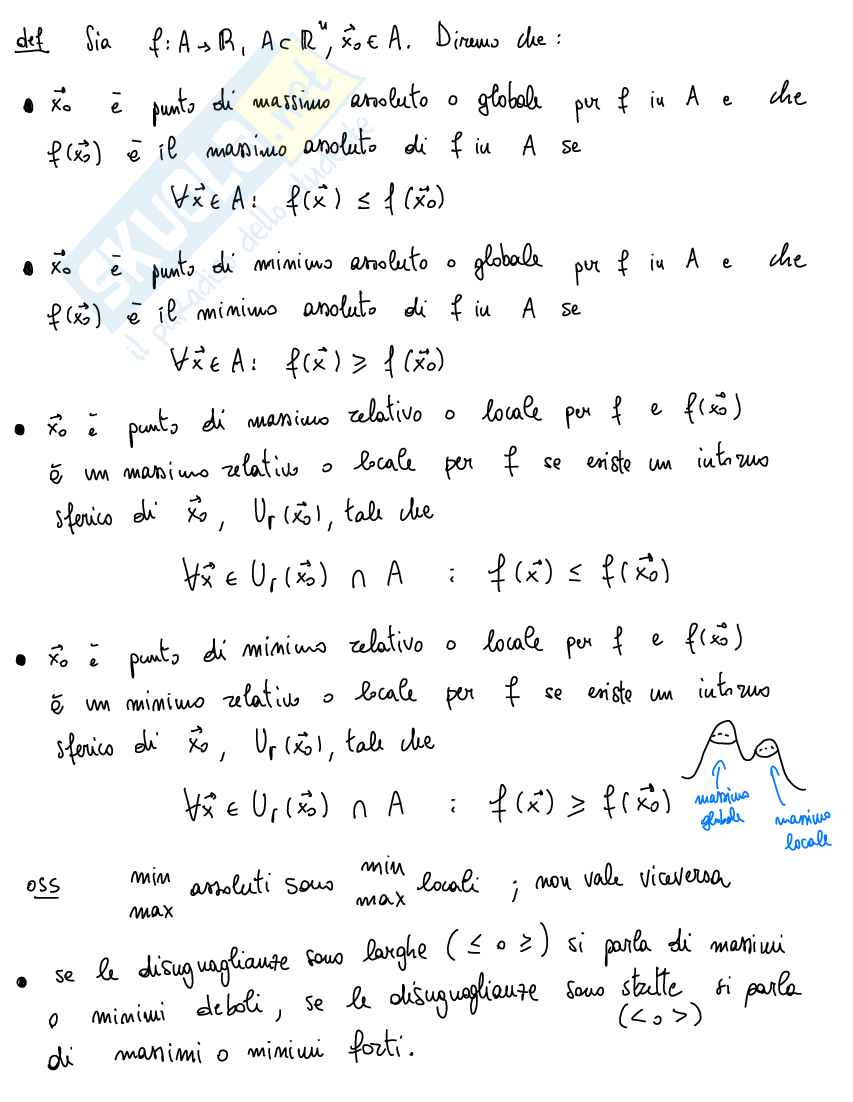 def Sia f: A → ℝ, A ⊂ ℝⁿ, x⃗₀ ∈ A. Diremo che:
• x⃗₀ è punto di massimo assoluto o globale per f in A e che
f(x⃗₀) è il massimo assoluto di f in A se
∀x⃗ ∈ A: f(x⃗) ≤ f(x⃗₀)
• x⃗₀ è punto di minimo assoluto o globale per f in A e che
f(x⃗₀) è il minimo assoluto di f in A se
∀x⃗ ∈ A: f(x⃗) ≥ f(x⃗₀)
• x⃗₀ è punto di massimo relativo o locale per f e f(x⃗₀)
è un massimo relativo o locale per f se esiste un intorno
sferico di x⃗₀, Uᵣ(x⃗₀), tale che
∀x⃗ ∈ Uᵣ(x⃗₀) ∩ A : f(x⃗) ≤ f(x⃗₀)
• x⃗₀ è punto di minimo relativo o locale per f e f(x⃗₀)
è un minimo relativo o locale per f se esiste un intorno
sferico di x⃗₀, Uᵣ(x⃗₀), tale che
∀x⃗ ∈ Uᵣ(x⃗₀) ∩ A : f(x⃗) ≥ f(x⃗₀)
massimo
globale
massimo
locale
oss min max assoluti sono min max locali; non vale viceversa
• se le disuguaglianze sono larghe (≤ o ≥) si parla di massimi
o minimi deboli, se le disuguaglianze sono strette si parla
(< o >)
di massimi o minimi forti.
SKUOLA.net
il paradiso dello studente